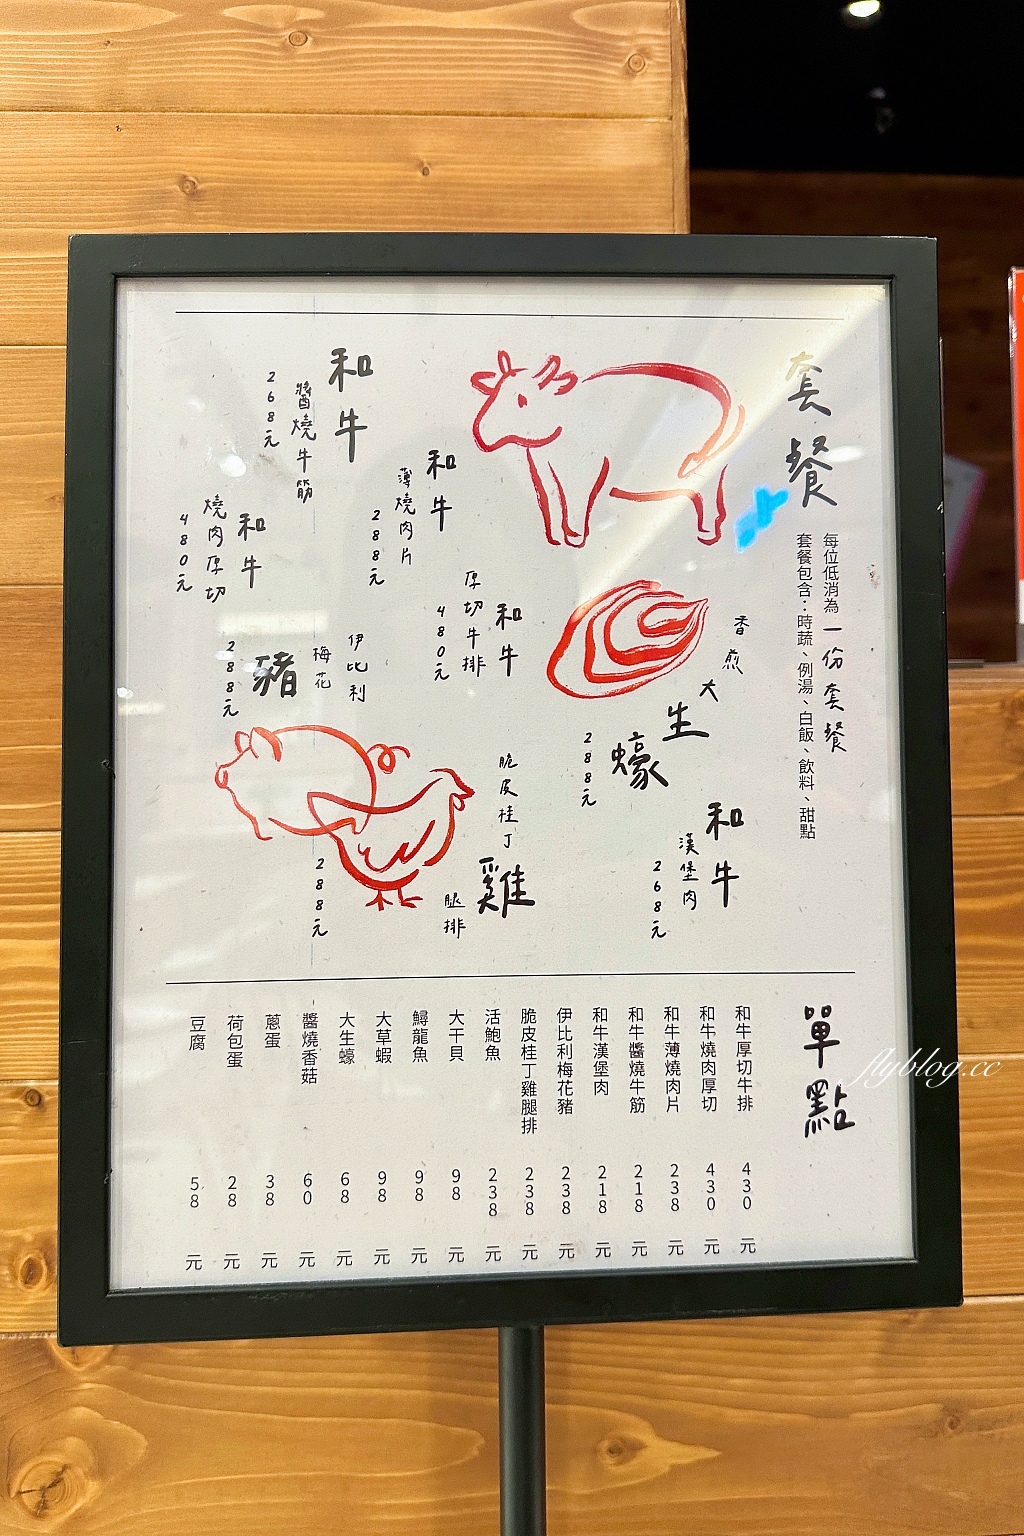 套餐
每位低消為一份套餐
套餐包含：時蔬、例湯、白飯、飲料、甜點
香煎大生蠔
288元
和牛
漢堡肉
268元
和牛
厚切牛排
480元
脆皮桂丁雞腿排
288元
和牛
薄燒肉片
288元
和牛
醬燒牛筋
268元
和牛
燒肉厚切
480元
伊比利梅花豬
288元
單點
和牛厚切牛排 430元
和牛燒肉厚切 430元
和牛薄燒肉片 238元
和牛醬燒牛筋 218元
和牛漢堡肉 218元
伊比利梅花豬 238元
脆皮桂丁雞腿排 238元
活鮑魚 238元
大干貝 98元
鱘龍魚 98元
大草蝦 98元
大生蠔 68元
醬燒香菇 60元
蔥蛋 38元
荷包蛋 28元
豆腐 58元
flyblog.cc